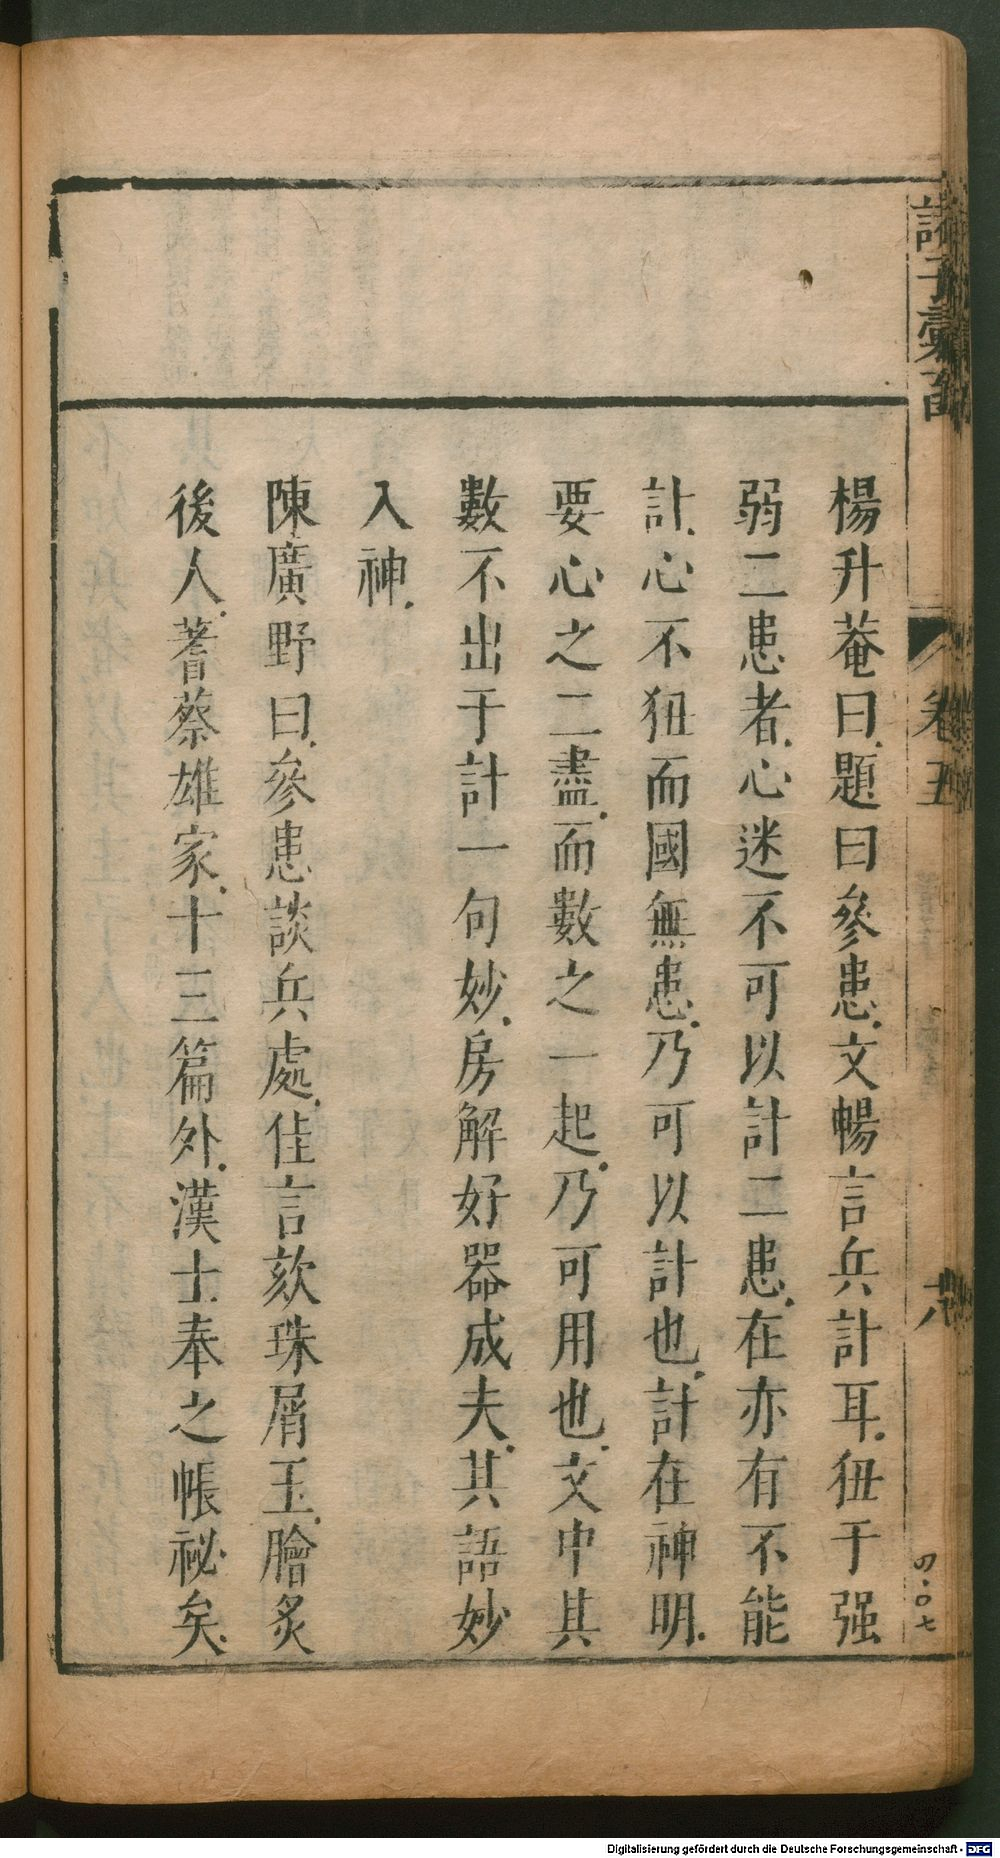 楊升菴曰題曰參患文暢言兵計耳狃于强
弱二患者心迷不可以計二患在亦有不能
計心不狃而國無患乃可以計也計在神明
要心之二盡而數之一起乃可用也文中其
數不出于計一句妙房解好器成夫其語妙
入神
陳廣野曰參患談兵處佳言欬珠屑玉膾炙
後人蓍蔡雄家十三篇外漢士奉之帳祕矣
諸子彙
卷五
六
四〇七
Digitalisierung gefördert durch die Deutsche Forschungsgemeinschaft - DFG